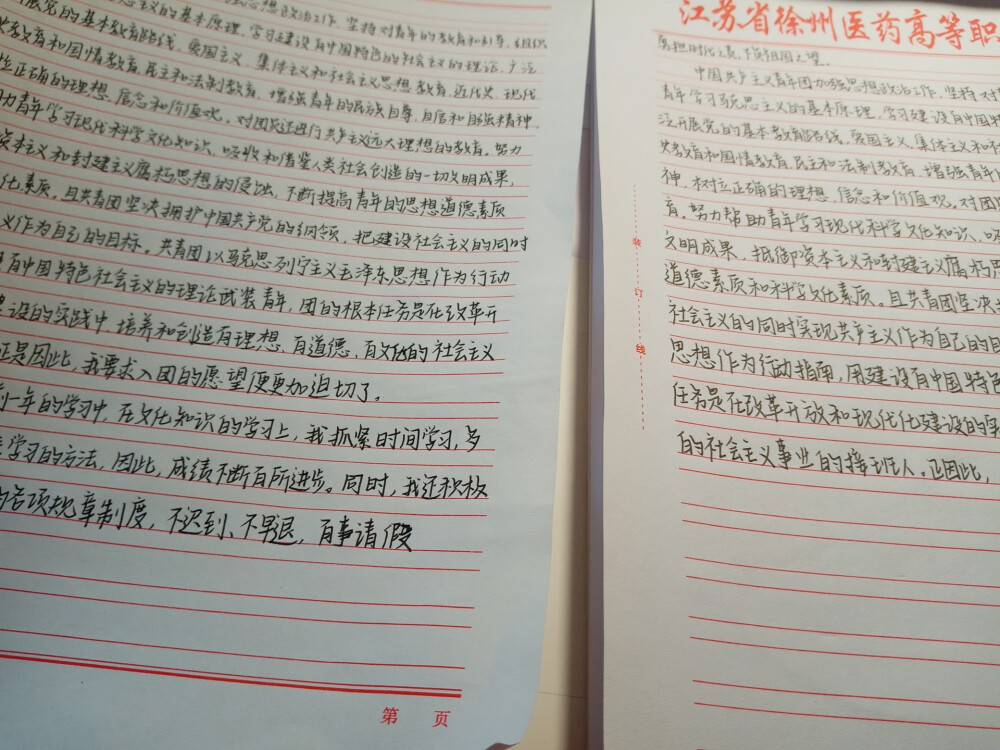 思想政治工作,坚持对青年的教育和引导,组织
思主义的基本原理,学习建设有中国特色的社会主义的理论,广泛
展党的基本教育路线,爱国主义,集体主义和社会主义思想教育,近代史、现代
史教育和国情教育,民主和法制教育,增强青年的民族自尊,自信和自强精神,
立正确的理想,信念和价值观。对团员还进行共产主义远大理想的教育。努力
助青年学习现代科学文化知识、吸收和借鉴人类社会创造的一切文明成果,
资本主义和封建主义腐朽思想的侵蚀,不断提高青年的思想道德素质
化素质。且共青团坚决拥护中国共产党的纲领,把建设社会主义的同时
义作为自己的目标。共青团以马克思列宁主义毛泽东思想作为行动
有中国特色社会主义的理论武装青年,团的根本任务是在改革开
设的实践中,培养和创造有理想、有道德、有文化的社会主义
正是因此,我要求入团的愿望便更加迫切了。
一年的学习中,在文化知识的学习上,我抓紧时间学习,多
学习的方法,因此,成绩不断有所进步。同时,我还积极
各项规章制度,不迟到、不早退,有事请假
第 页
江苏省徐州医药高等职
中国共产主义青年团加强思想政治工作,坚持对
青年学习马克思主义的基本原理,学习建设有中国特
泛开展党的基本教育路线,爱国主义,集体主义和
史教育和国情教育,民主和法制教育,增强青年
神,树立正确的理想,信念和价值观。对团
育。努力帮助青年学习现代科学文化知识、
文明成果,抵御资本主义和封建主义腐朽
道德素质和科学文化素质。且共青团坚决
社会主义的同时实现共产主义作为自己的目
思想作为行动指南,用建设有中国特色
任务是在改革开放和现代化建设的实
的社会主义事业的接班人。正因此,
装
订
线